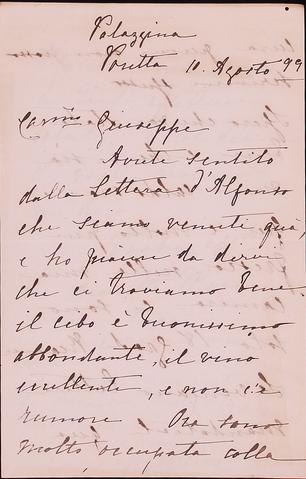 Palazzina
Poretta 10. Agosto 99
Carmo Giuseppe
Avete sentito
dalla lettera d'Alfonso
che siamo venuti qua,
e ho piacere da dirvi
che ci troviamo bene
il cibo è buonissimo
abbondante, il vino
eccellente, e non c'è
rumore Ora sono
molto occupata colla